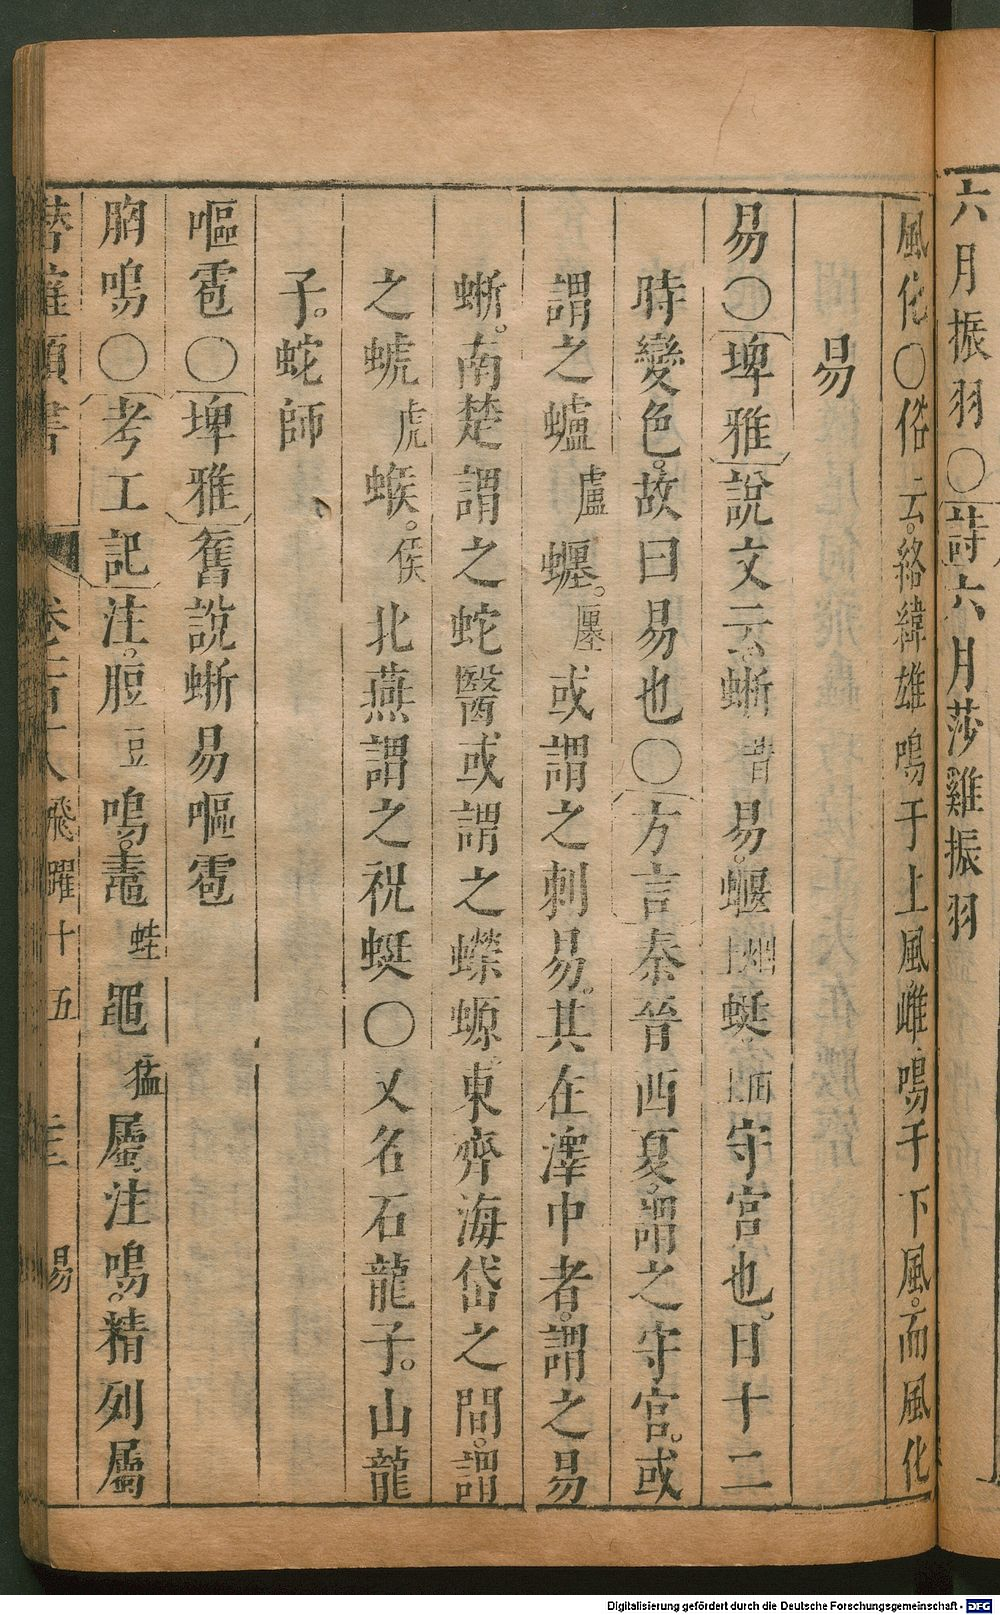 六月振羽〇詩六月莎雞振羽
風化〇俗云絡緯雄鳴于上風雌鳴于下風而風化
易
易〇埤雅說文云蜥昔易蝘蜓守宮也日十二
時變色故曰易也〇方言秦晉西夏謂之守宮或
謂之蠦盧𧔧廛或謂之刺易其在澤中者謂之易
蜥南楚謂之蛇醫或謂之蠑螈東齊海岱之間謂
之螔虎䗔侯北燕謂之祝蜓〇又名石龍子山龍
子蛇師
嘔雹〇埤雅舊說蜥易嘔雹
胸鳴〇考工記注脰豆鳴鼃蛙黽猛屬注鳴精列屬
類書 飛躍十五 易
Digitalisierung gefördert durch die Deutsche Forschungsgemeinschaft - DFG